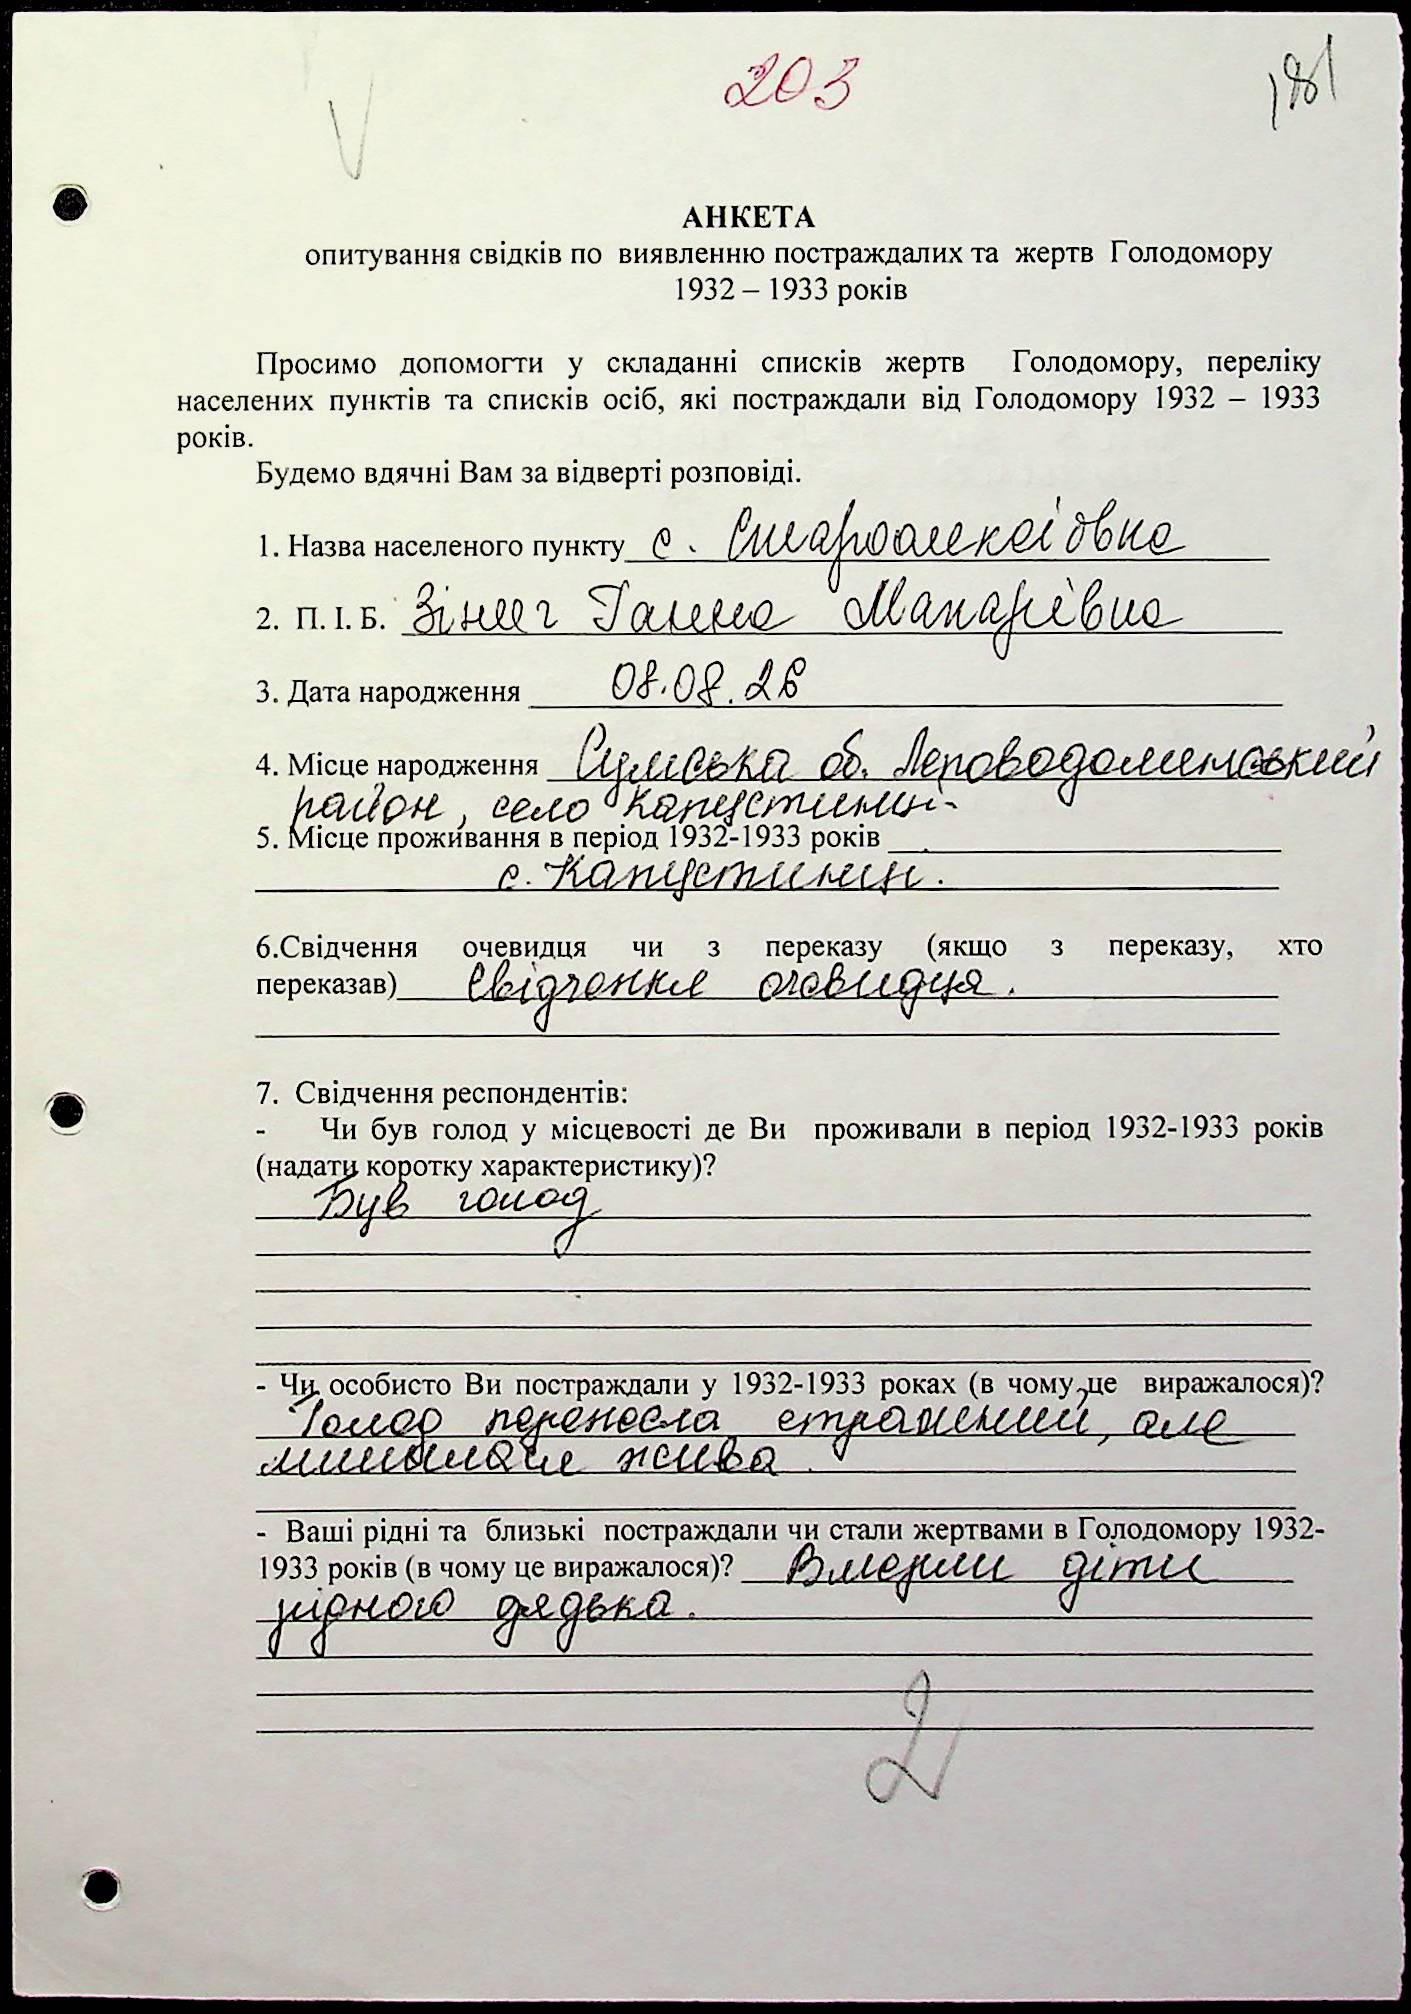 203
181
АНКЕТА
опитування свідків по виявленню постраждалих та жертв Голодомору
1932 – 1933 років
Просимо допомогти у складанні списків жертв Голодомору, переліку
населених пунктів та списків осіб, які постраждали від Голодомору 1932 – 1933
років.
Будемо вдячні Вам за відверті розповіді.
1. Назва населеного пункту с. Старолексіївна
2. П. І. Б. Ганна Макарівна
3. Дата народження 08.08.26
4. Місце народження Сумська об.
район, село Капустинці
5. Місце проживання в період 1932-1933 років
с. Капустинці.
6.Свідчення очевидця чи з переказу (якщо з переказу, хто
переказав) Свідчення очевидця.
7. Свідчення респондентів:
- Чи був голод у місцевості де Ви проживали в період 1932-1933 років
(надати коротку характеристику)?
Був голод
- Чи особисто Ви постраждали у 1932-1933 роках (в чому це виражалося)?
Голод перенесла страшний, але
лишилася жива.
- Ваші рідні та близькі постраждали чи стали жертвами в Голодомору 1932-
1933 років (в чому це виражалося)? Вмерли діти
рідного дядька.
2